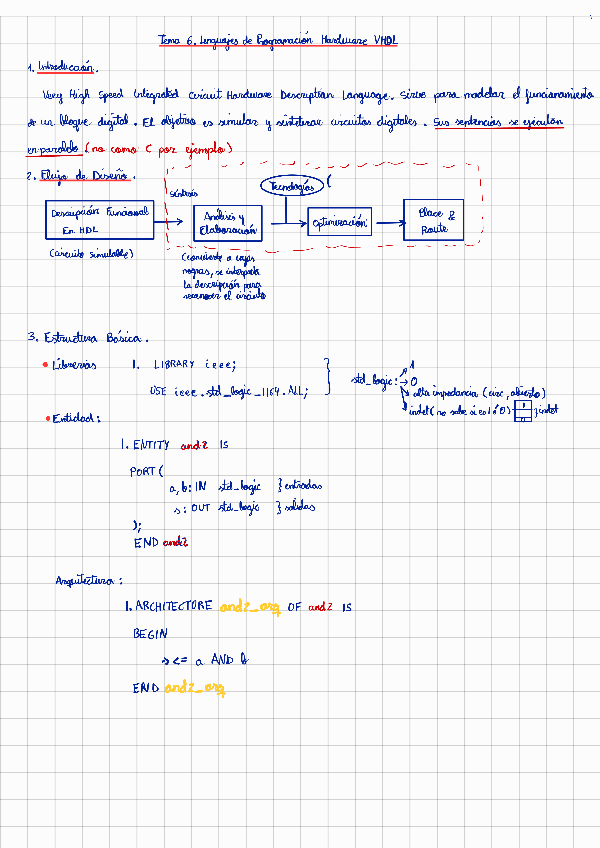 Tema 6. Lenguajes de Programación Hardware VHDL
1. Introducción.
Very High Speed Integrated Circuit Hardware Description Language. Sirve para modelar el funcionamiento
de un bloque digital. El objetivo es simular y sintetizar circuitos digitales. Sus sentencias se ejecutan
en paralelo (no como C por ejemplo)
2. Flujo de Diseño.
Síntesis
Tecnologías (
Descripción Funcional
En HDL
Análisis y
Elaboración
Optimización
Place &
Route
(circuito simulable)
(convierte a cajas
negras, se interpreta
la descripción para
reconocer el circuito
3. Estructura Básica.
• Librerías
1. LIBRARY ieee;
USE ieee.std_logic_1164.ALL;
std_logic: 1
0
alta impedancia (circ. abierto)
indet (no sabe si es 1 ó 0)
} indet
• Entidad:
1. ENTITY and2 IS
PORT (
a, b: IN std_logic } entradas
s: OUT std_logic } salidas
);
END and2
Arquitectura:
1. ARCHITECTORE and2_arq OF and2 IS
BEGIN
s <= a AND b
END and2_arq